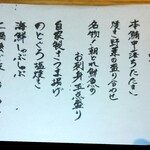 本鮪中落ちたたき
焼き野菜の盛り合わせ
名物！朝どれ鮮魚の
お刺身五点盛り
自家製さつま揚げ
のどぐろ塩焼き
海鮮しゃぶしゃぶ